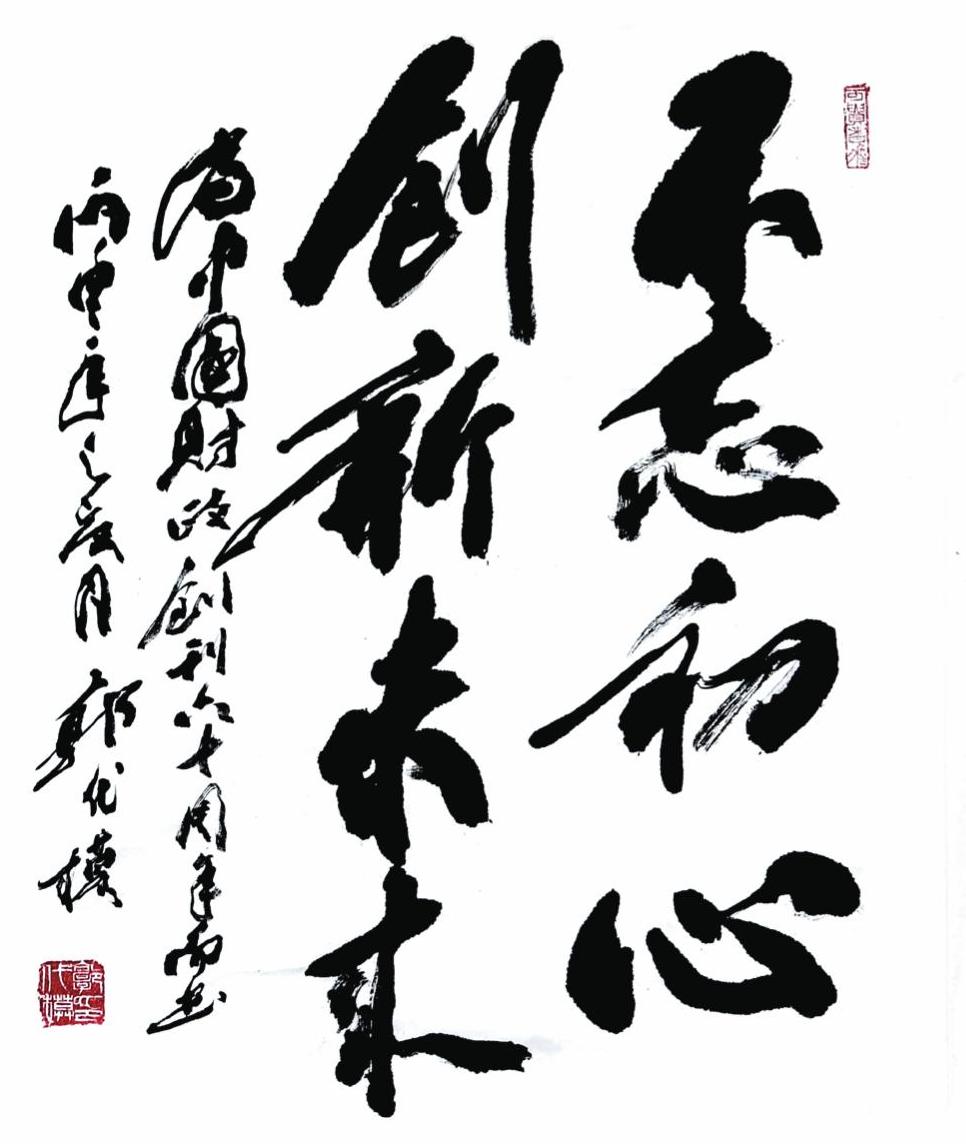 不忘初心
创新未来
为中國财政创刊六十周年而书
丙申年之夏月 郭代模